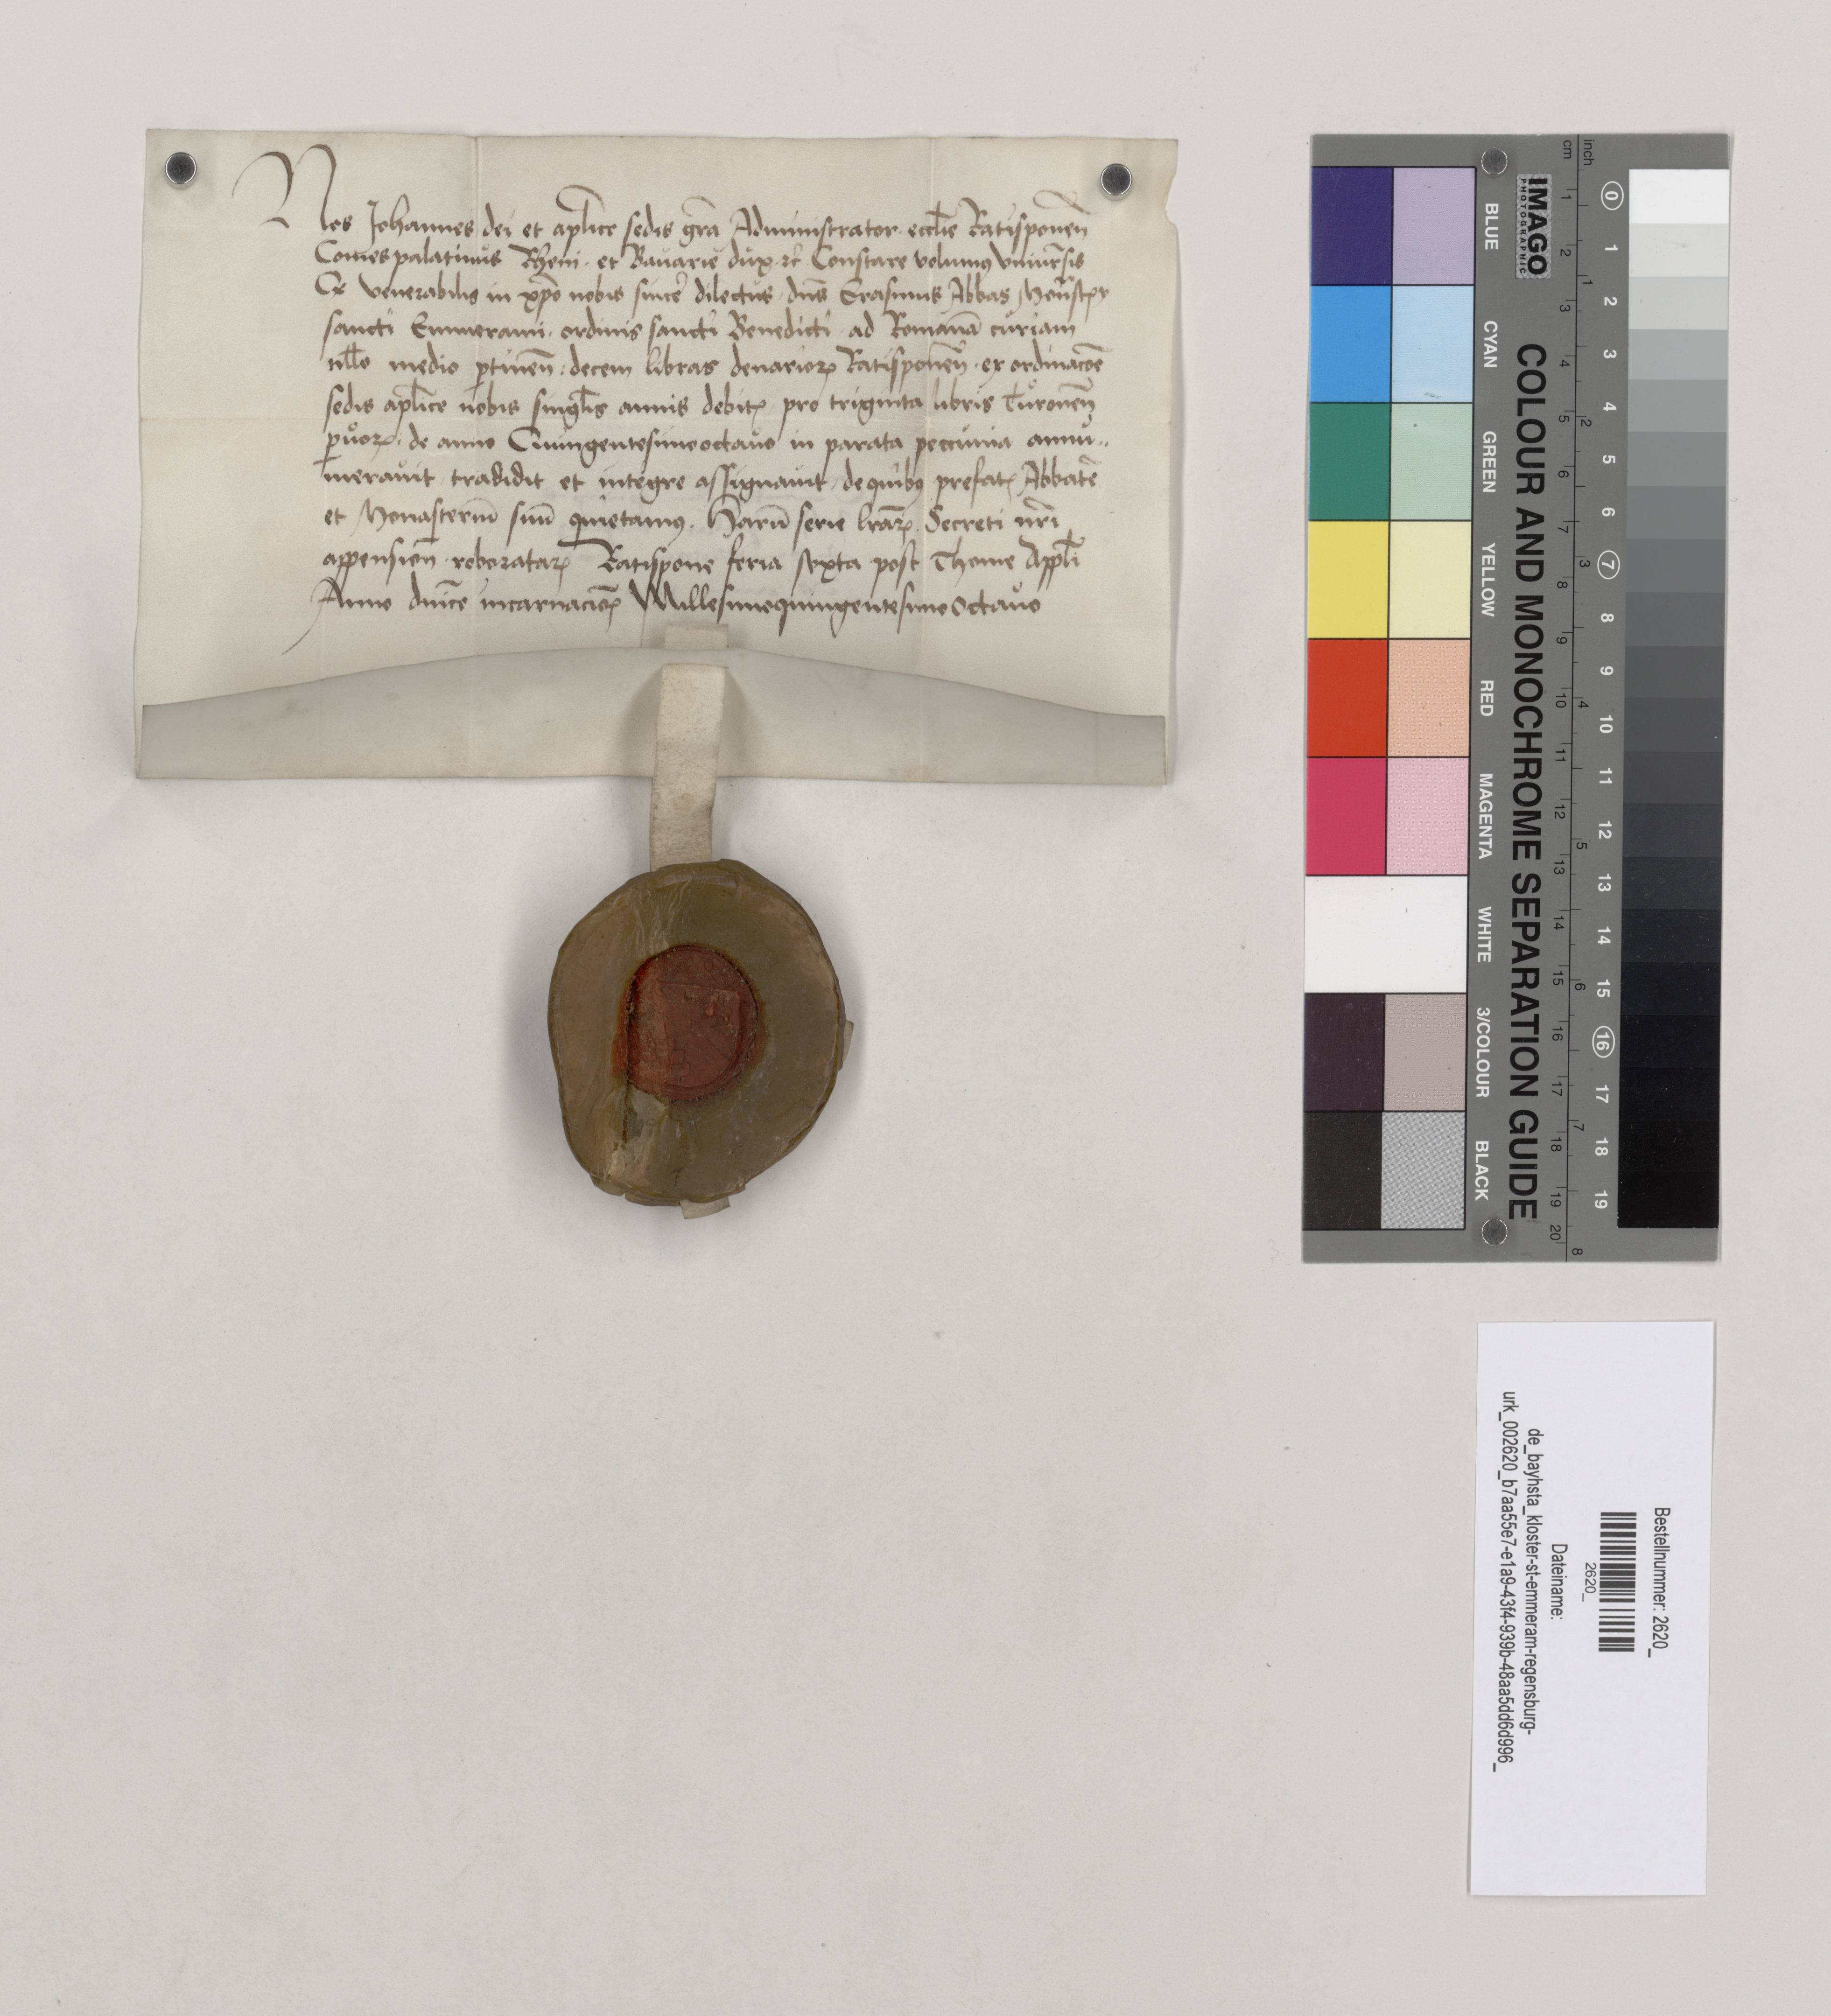 Nos Johannes dei et aplice sedis gra Administrator ecclie Ratisponen
Comes palatinus Rheni et Bavarie dux ꝛc Constare volumus vniuersis
Q venerabilis in xpo nobis sincere dilectus dns Erasmus Abbas Monstery
sancti Emmerami ordinis sancti Benedicti ad Romana curiam
nllo medio ptinen decem libras denarioꝝ Ratisponen ex ordinacoe
sedis aplice nobis singlis annis debitꝝ pro triginta libris Turonen
puoꝝ de anno Quingentesimooctavo in parata peccunia annu
meravit tradidit et integre assignavit de quibus prefatꝝ Abbate
et Monasteriu suu quietamus Haru serie lraꝝ Secreti nri
appensien roborataꝝ Ratispone feria sexta post Thome Appli
Anno dnice incarnacioꝝ Millesimoquingentesimo Octavo
IMAGO
PHOTOGRAPHIC
COLOUR AND MONOCHROME SEPARATION GUIDE
BLUE
CYAN
GREEN
YELLOW
RED
MAGENTA
WHITE
3/COLOUR
BLACK
cm 1 2 3 4 5 6 7 8 9 10 11 12 13 14 15 16 17 18 19 20
inch 1 2 3 4 5 6 7 8
0 1 2 3 4 5 6 7 8 9 10 11 12 13 14 15 16 17 18 19
Bestellnummer: 2620_
2620_
Dateiname:
de_bayhsta_kloster-st-emmeram-regensburg-
urk_002620_b7aa55e7-e1a9-43f4-939b-48aa5dd6d996_